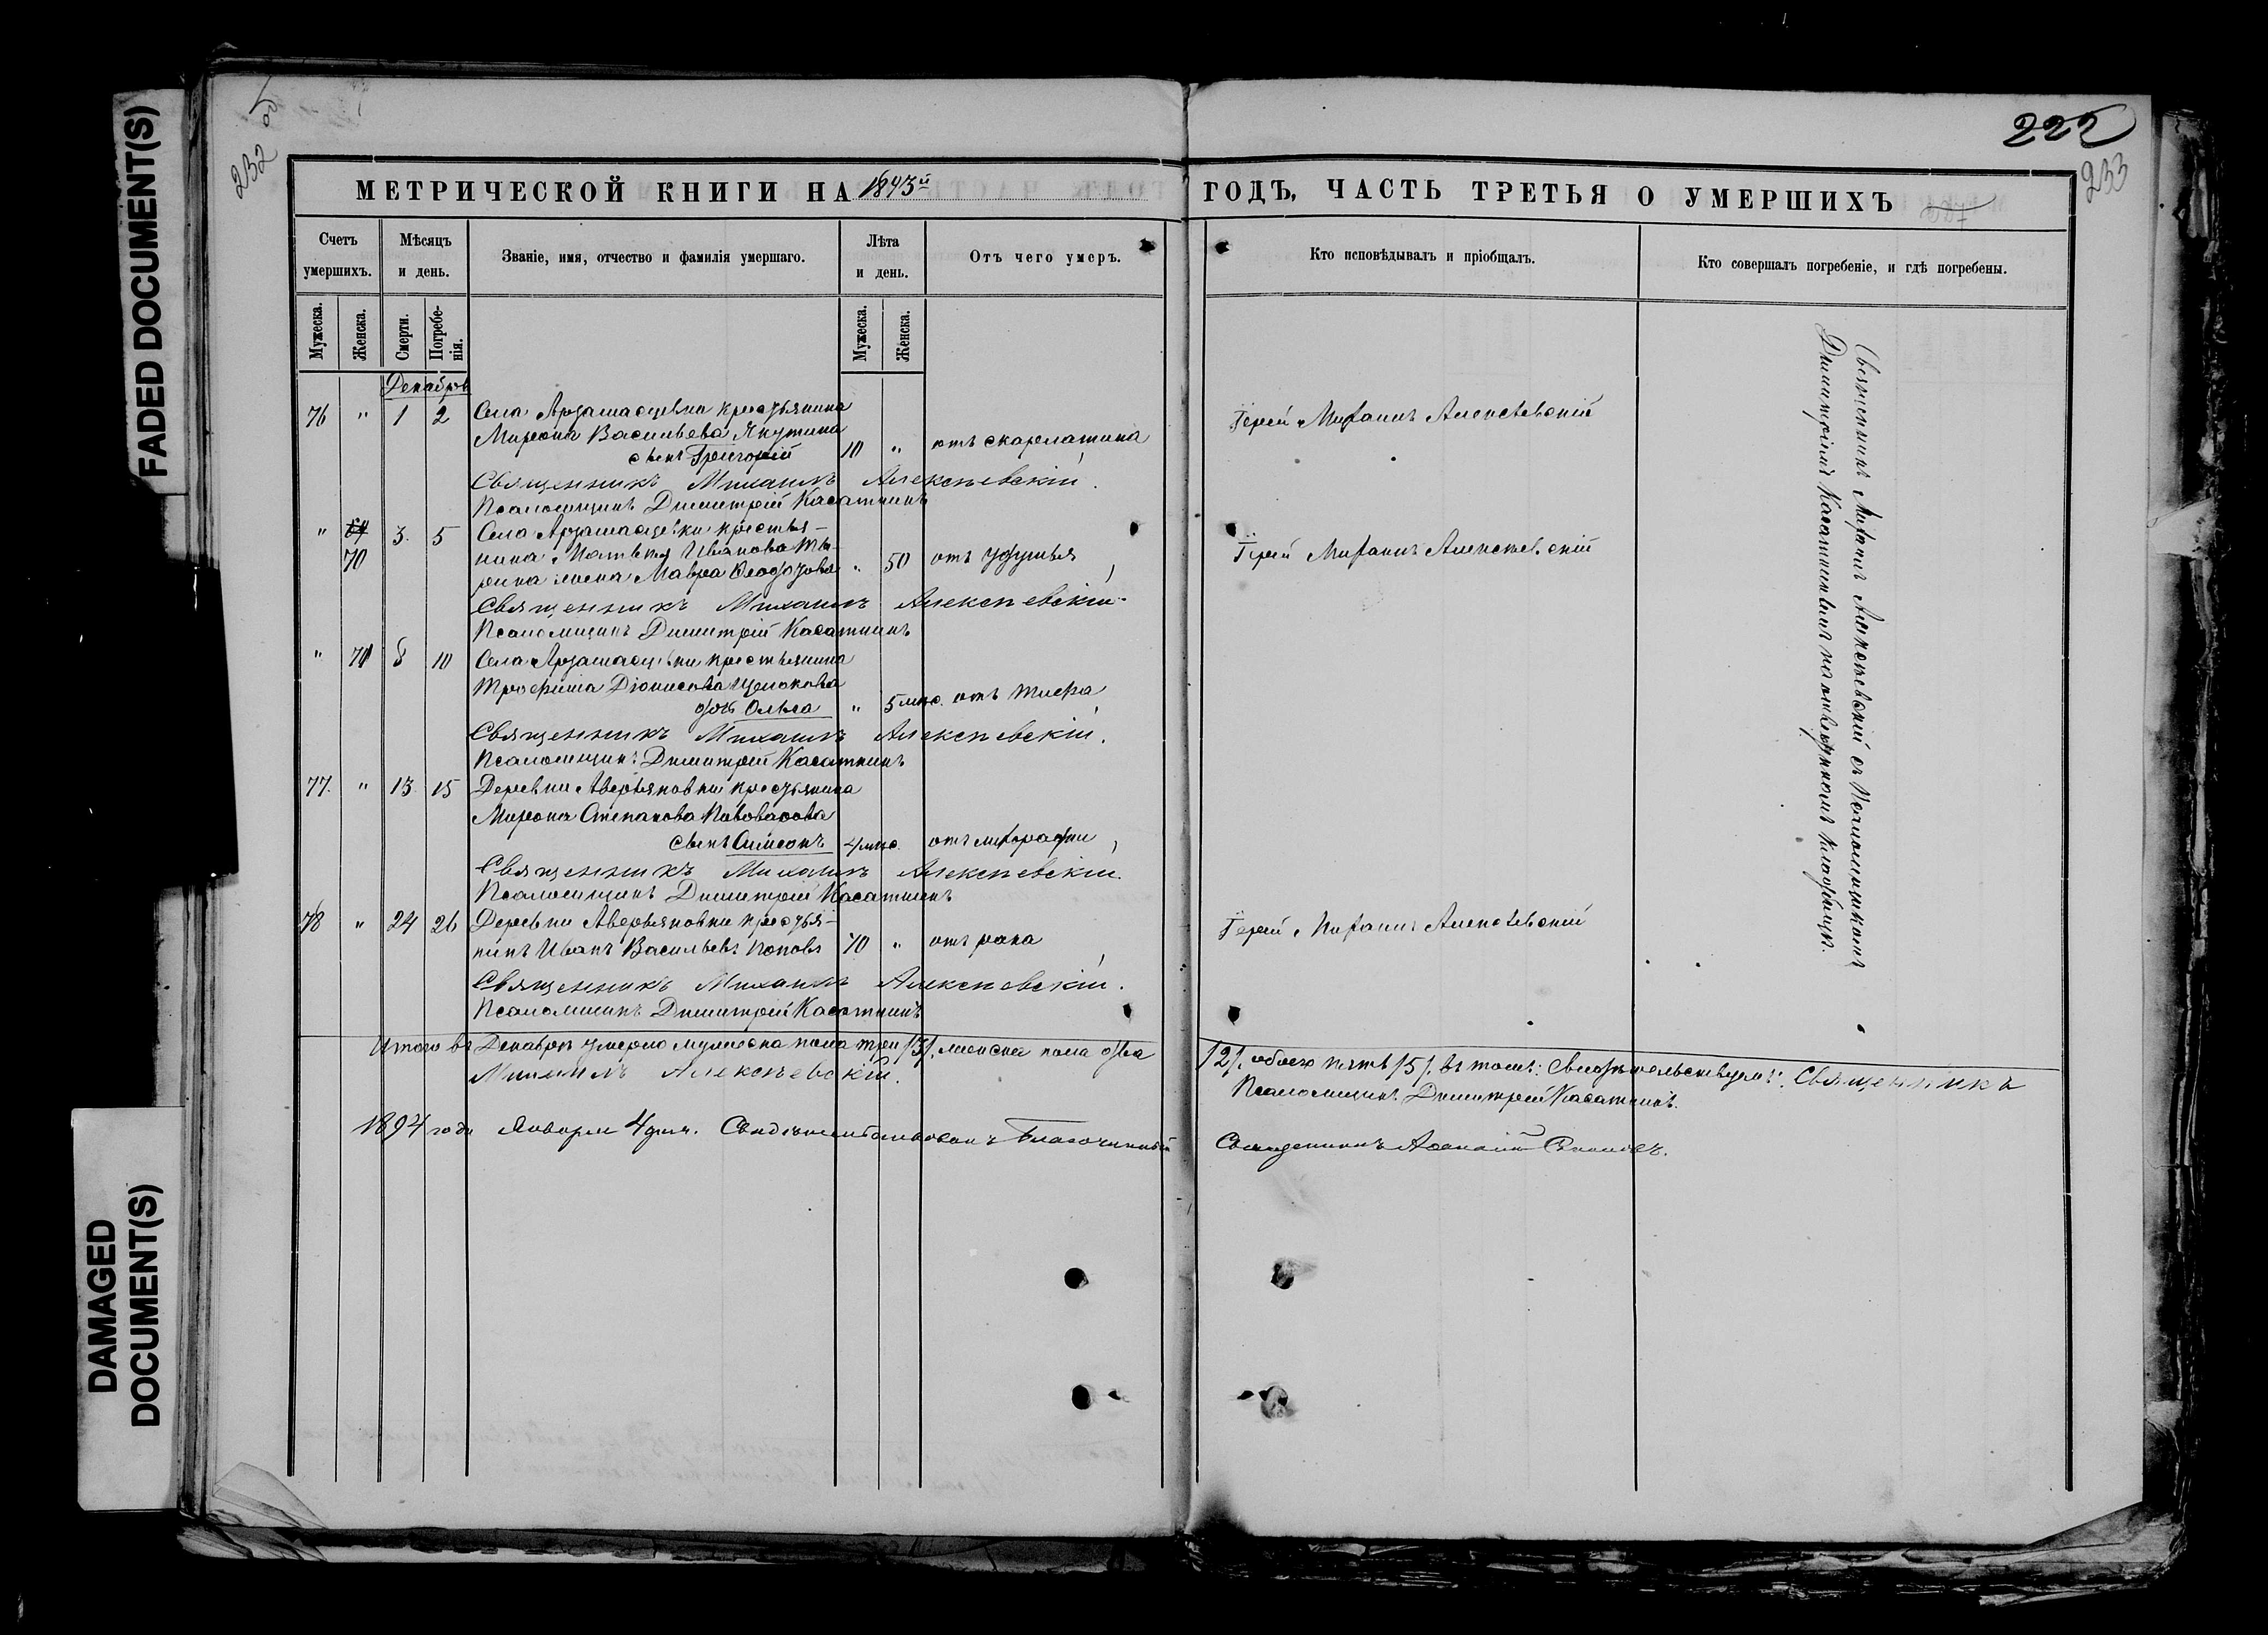 FADED DOCUMENT(S)
DAMAGED
DOCUMENT(S)
232
222
233
МЕТРИЧЕСКОЙ КНИГИ НА 1893й ГОДЪ, ЧАСТЬ ТРЕТЬЯ О УМЕРШИХЪ
Счетъ умершихъ.
Мѣсяцъ и день.
Званіе, имя, отчество и фамилія умершаго.
Лѣта и день.
Отъ чего умеръ.
Кто исповѣдывалъ и пріобщалъ.
Кто совершалъ погребеніе, и гдѣ погребены.
Мужеска.
Женска.
Смерти.
Погребе-
нія.
Мужеска.
Женска.
Декабрь
76 " 1 2 Села Арзамасцевки крестьянина
Мирона Васильева Якунина
сынъ Григорій 10 " отъ скарлатина Іерей Михаилъ Алексѣевскій
Священникъ Михаилъ Алексѣевскій.
Псаломщикъ Димитрій Касаткинъ
" 70 3. 5 Села Арзамасцевки крестья-
нина Матвѣя Иванова Тю-
рина жена Мавра Ѳеодорова " 50 отъ удушья Іерей Михаилъ Алексѣевскій
Священникъ Михаилъ Алексѣевскій
Псаломщикъ Димитрій Касаткинъ
" 71 8 10 Села Арзамасцевки крестьянина
Трофима Діонисова
дочь Ольга " 5 мѣс. отъ тифа
Священникъ Михаилъ Алексѣевскій.
Псаломщикъ Димитрій Касаткинъ
77. " 13 15 Деревни Аверьяновки крестьянина
Мирона Степанова Пивоварова
сынъ Симеонъ 4 мѣс. отъ
Священникъ Михаилъ Алексѣевскій.
Псаломщикъ Димитрій Касаткинъ
78 " 24 26 Деревни Аверьяновки крестья-
нинъ Иванъ Васильевъ Поповъ 70 " отъ рака Іерей Михаилъ Алексѣевскій
Священникъ Михаилъ Алексѣевскій.
Псаломщикъ Димитрій Касаткинъ
Священникъ Михаилъ Алексѣевскій съ Псаломщикомъ
Димитріемъ Касаткинымъ на кладбищѣ.
Итого въ Декабрѣ умерло мужеска пола три /3/, женска пола два /2/, обоего пять /5/. Въ томъ: Свидѣтельствуемъ: Священникъ
Михаилъ Алексѣевскій. Псаломщикъ Димитрій Касаткинъ.
1894 года Января 4 дня. Свидѣтельствовалъ Благочинный Священникъ